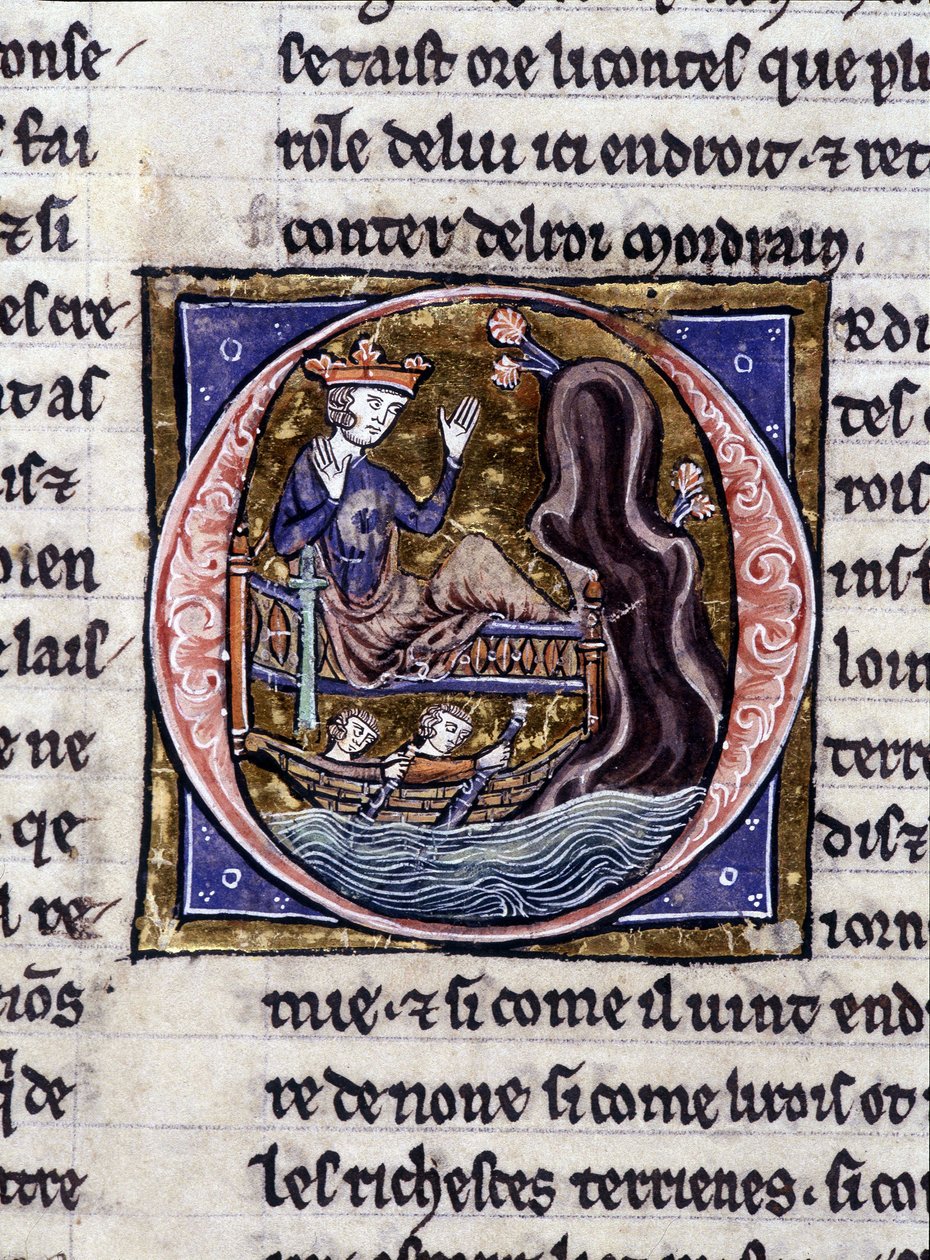 onse
fai
⁊ si
es cre
as
⁊
bien
e lais
e ne
qe
re
tiōs
de
tre
se taist ore li contes que plu
role de lui ici endroit. ⁊ ret
conter del roi mordrain.
O
R di
tes
rois
ins
loin
terre
dis ⁊
iorn
mie. ⁊ si come il uint end
re de noue si come li rois ot
les richestes terrienes. si co